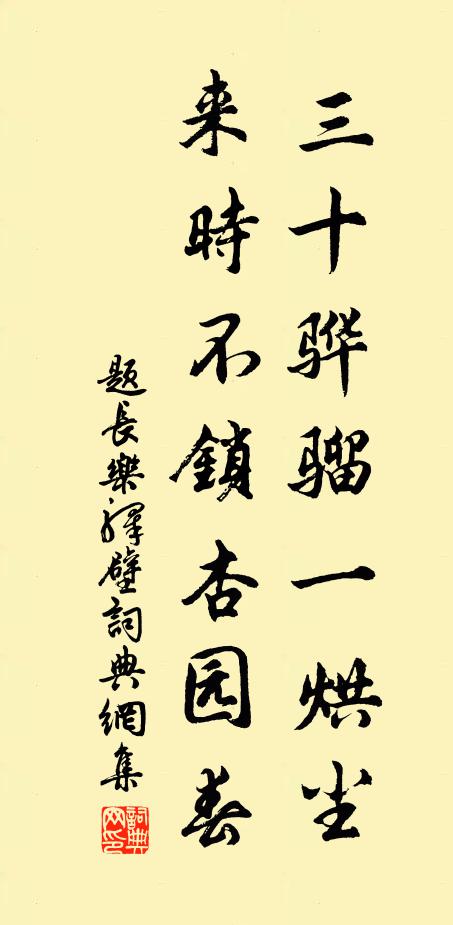 三十骅骝一烘尘
来時不鎖杏园春
题長樂驛壁詞典網集
詞典网印